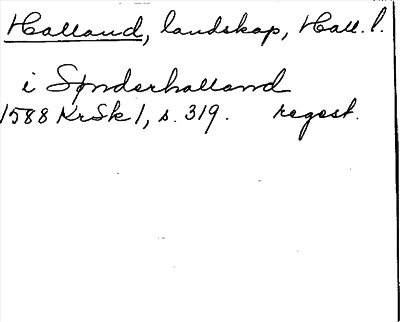 Halland, landskap, Hall. l.
i Synderhalland
1588 KrSk 1, s. 319. regest.